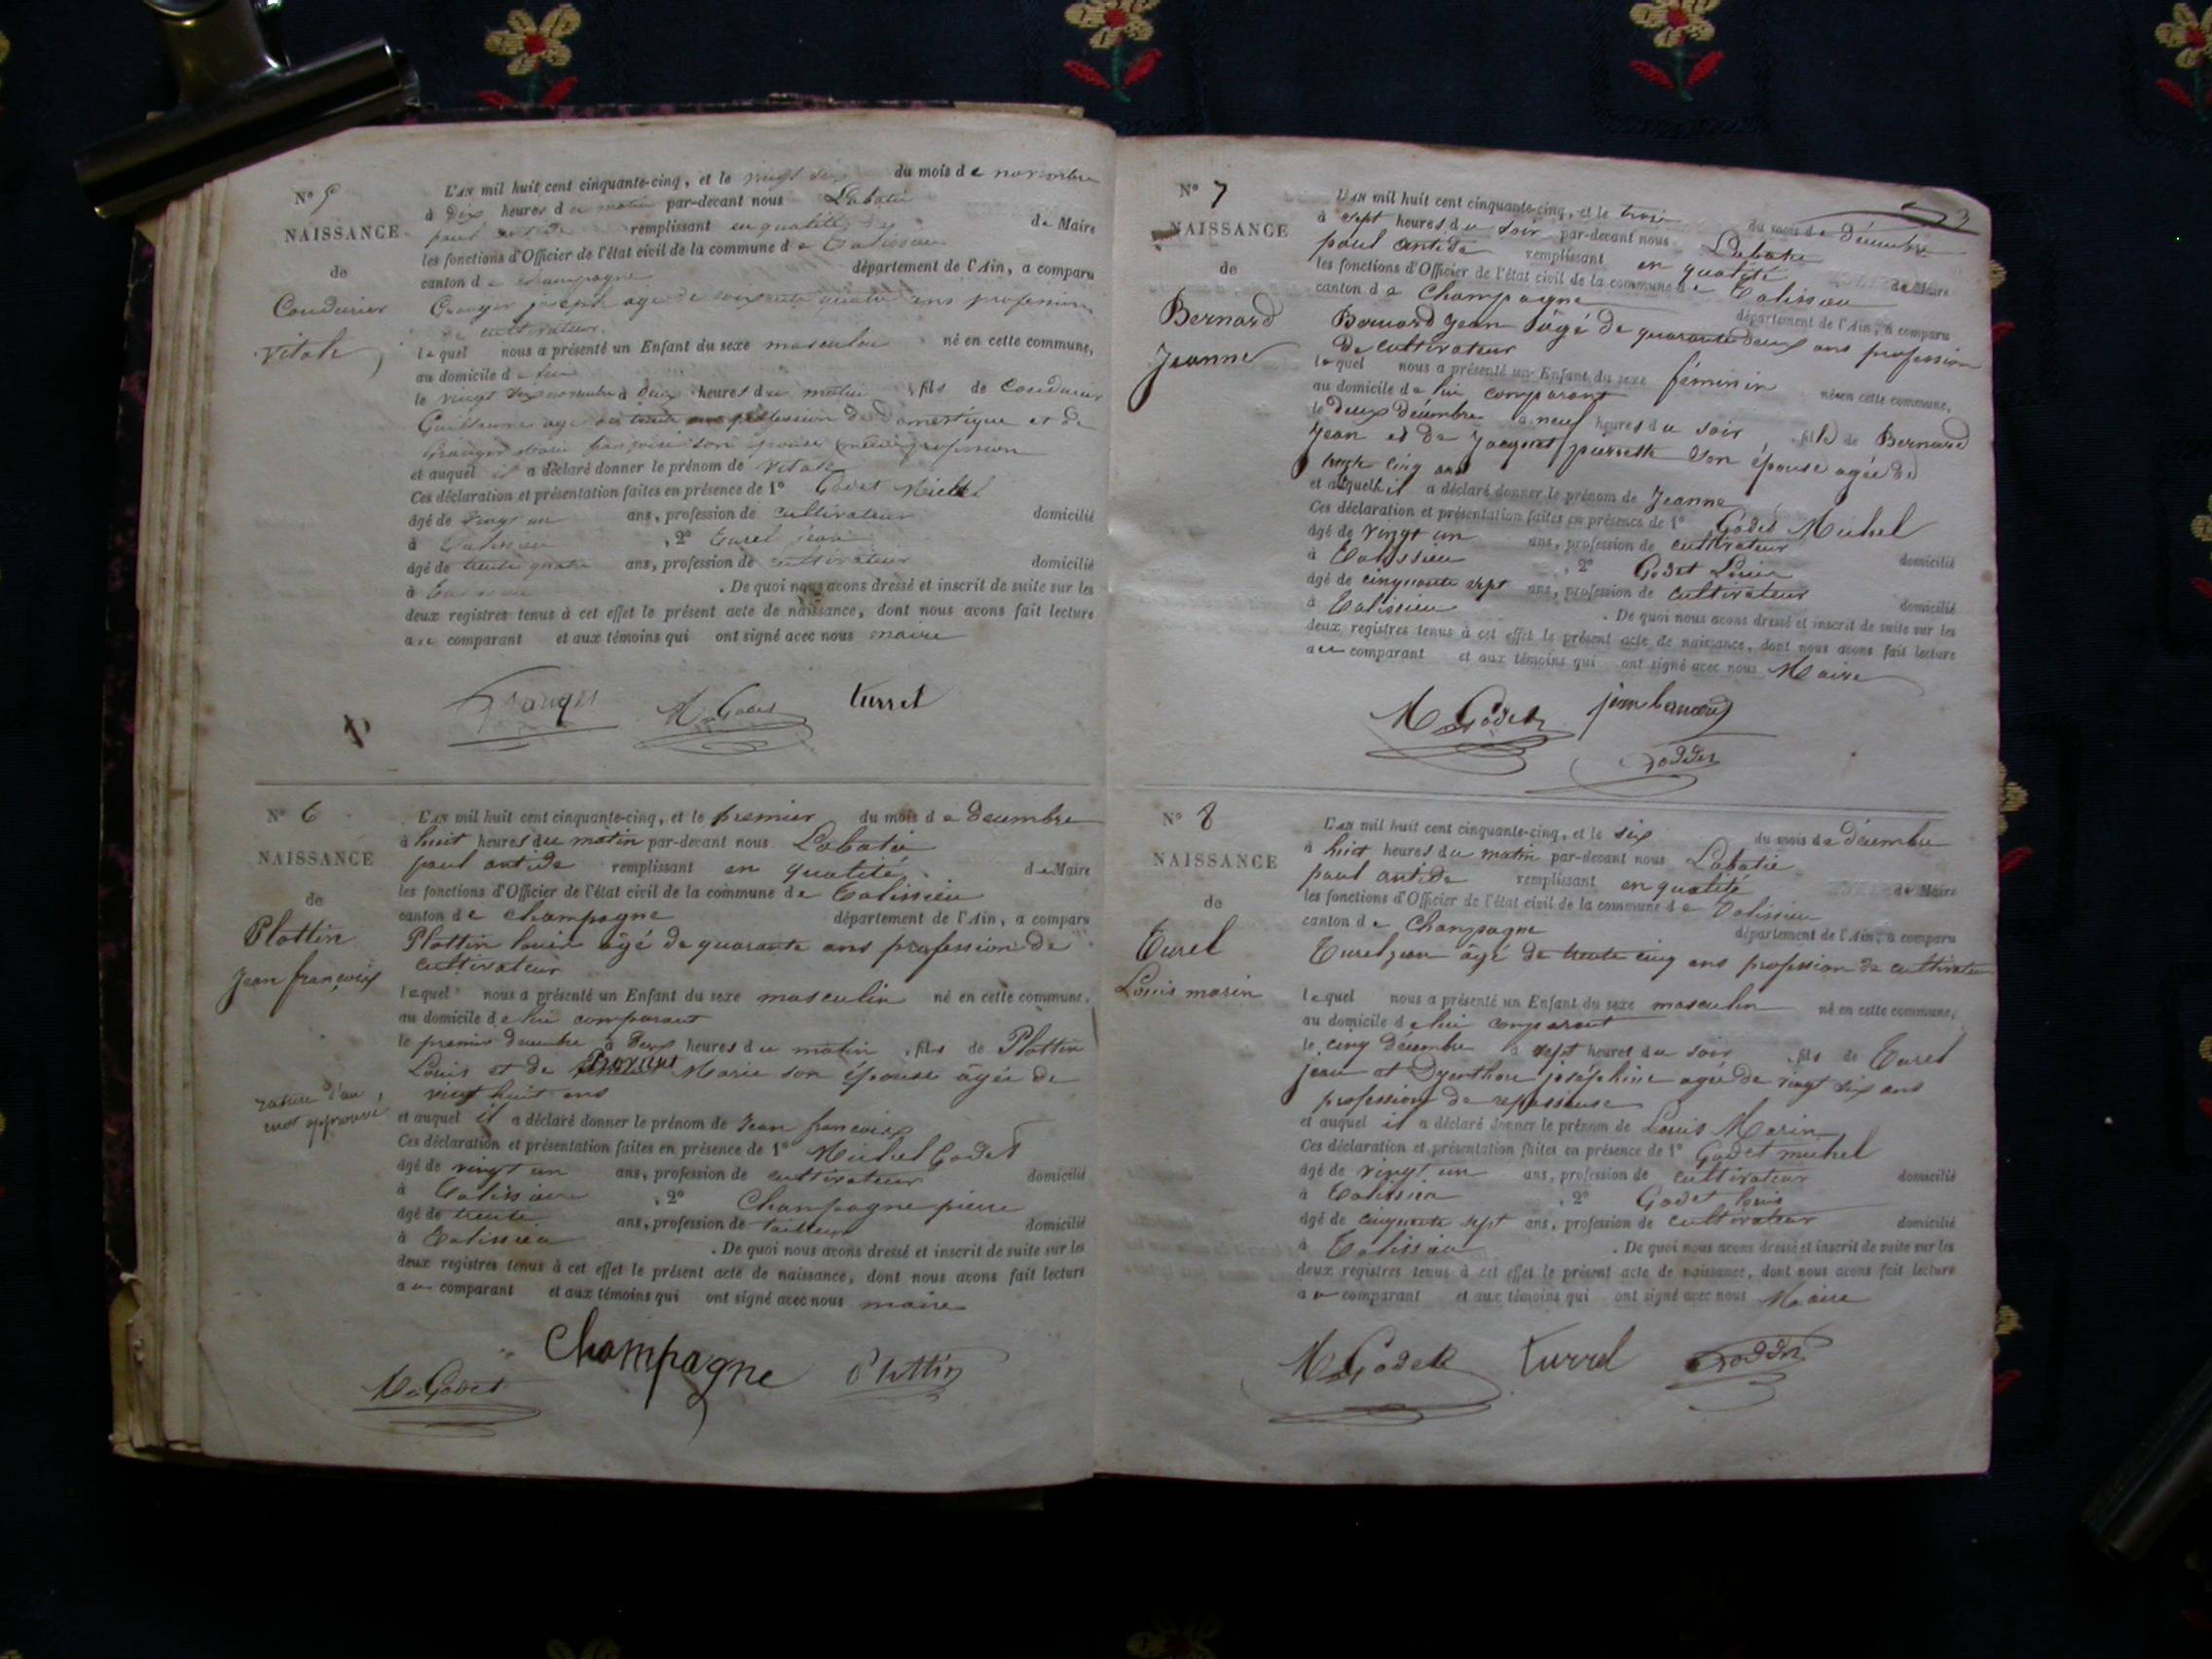 N° 5
NAISSANCE
de
Coudurier
Vitale
L'AN mil huit cent cinquante-cinq, et le vingt six du mois de novembre
à dix heures du matin par-devant nous Labatie
paul antide remplissant en qualité de Maire
les fonctions d'Officier de l'état civil de la commune de Talissieu
canton de champagne département de l'Ain, a comparu
Granger joseph age de soixante quatre ans profession
de cultivateur
lequel nous a présenté un Enfant du sexe masculin né en cette commune,
au domicile de lui
le vingt six novembre à deux heures du matin, fils de Coudurier
Guillaume age de trente ans profession de domestique et de
Granger françoise son épouse même profession
et auquel il a déclaré donner le prénom de Vitale
Ces déclaration et présentation faites en présence de 1° Godet Michel
âgé de vingt un ans, profession de cultivateur domicilié
à Talissieu , 2° Turel jean
âgé de trente quatre ans, profession de cultivateur domicilié
à Talissieu . De quoi nous avons dressé et inscrit de suite sur les
deux registres tenus à cet effet le présent acte de naissance, dont nous avons fait lecture
au comparant et aux témoins qui ont signé avec nous maire
Granger M Godet turrel
N° 6
NAISSANCE
de
Plattin
Jean françois
rature d'un
mot approuvé
L'AN mil huit cent cinquante-cinq, et le premier du mois de decembre
à huit heures du matin par-devant nous Labatie
paul antide remplissant en qualité de Maire
les fonctions d'Officier de l'état civil de la commune de Talissieu
canton de champagne département de l'Ain, a comparu
Plattin louis âgé de quarante ans profession de
cultivateur
lequel nous a présenté un Enfant du sexe masculin né en cette commune,
au domicile de lui comparant
le premier decembre à deux heures du matin, fils de Plattin
Louis et de Marie son épouse âgée de
vingt huit ans
et auquel il a déclaré donner le prénom de Jean françois
Ces déclaration et présentation faites en présence de 1° Michel Godet
âgé de vingt un ans, profession de cultivateur domicilié
à Talissieu , 2° Champagne pierre
âgé de trente ans, profession de tailleur domicilié
à Talissieu . De quoi nous avons dressé et inscrit de suite sur les
deux registres tenus à cet effet le présent acte de naissance, dont nous avons fait lecture
au comparant et aux témoins qui ont signé avec nous maire
Champagne
M Godet Plattin
3
N° 7
NAISSANCE
de
Bernard
Jeanne
L'AN mil huit cent cinquante-cinq, et le trois du mois de Décembre
à sept heures du soir par-devant nous Labatie
paul antide remplissant en qualité de Maire
les fonctions d'Officier de l'état civil de la commune de Talissieu
canton de Champagne département de l'Ain, a comparu
Bernard Jean âgé de quarante deux ans profession
de cultivateur
lequel nous a présenté un Enfant du sexe féminin née en cette commune,
au domicile de lui comparant
le deux décembre à neuf heures du soir, fille de Bernard
Jean et de Jacquet pierrette son épouse agée de
trente cinq ans
et auquelle il a déclaré donner le prénom de Jeanne
Ces déclaration et présentation faites en présence de 1° Godet Michel
âgé de vingt un ans, profession de cultivateur domicilié
à Talissieu , 2° Godet Louis
âgé de cinquante sept ans, profession de cultivateur domicilié
à Talissieu . De quoi nous avons dressé et inscrit de suite sur les
deux registres tenus à cet effet le présent acte de naissance, dont nous avons fait lecture
au comparant et aux témoins qui ont signé avec nous Maire
M Godet jean bernard
N° 8
NAISSANCE
de
Turel
Louis marin
L'AN mil huit cent cinquante-cinq, et le six du mois de décembre
à huit heures du matin par-devant nous Labatie
paul antide remplissant en qualité de Maire
les fonctions d'Officier de l'état civil de la commune de Talissieu
canton de Champagne département de l'Ain, a comparu
Turel jean âgé de trente cinq ans profession de cultivateur
lequel nous a présenté un Enfant du sexe masculin né en cette commune,
au domicile de lui comparant
le cinq décembre à sept heures du soir, fils de Turel
jean et joséphine agée de vingt six ans
profession de repasseuse
et auquel il a déclaré donner le prénom de Louis Marin
Ces déclaration et présentation faites en présence de 1° Godet michel
âgé de vingt un ans, profession de cultivateur domicilié
à Talissieu , 2° Godet louis
âgé de cinquante sept ans, profession de cultivateur domicilié
à Talissieu . De quoi nous avons dressé et inscrit de suite sur les
deux registres tenus à cet effet le présent acte de naissance, dont nous avons fait lecture
au comparant et aux témoins qui ont signé avec nous Maire
M Godet turrel